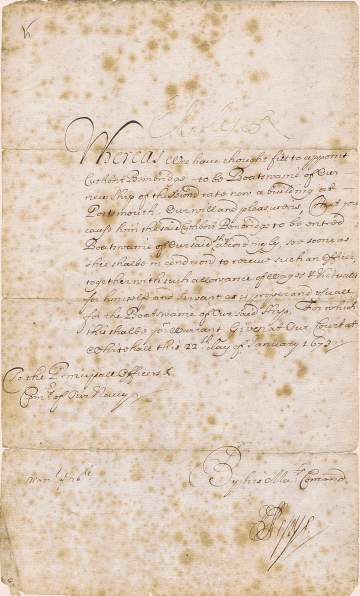 Charles R
Whereas We have thought fitt to appoint
Cuthbert Bembridge to be Boatswaine of Our
new Ship of the second rate now a building at
Portsmouth, Our will and pleasure is, That you
cause him the said Cuthbert Bembridge to be entred
Boatswaine of Our said Ship accordingly, soe soone as
she shalbe in condition to receive such an Officer,
together with such allowance of Wages & Victuals
for himselfe and servant as is proper and usuall
for the Boatswaine of Our said Ship. For which
this shalbe yor Warrant. Given at Our Court at
Whitehall this 22th day of January 167
To the Principall Officers &
Comrs of Our Navy
By his Mats Comand